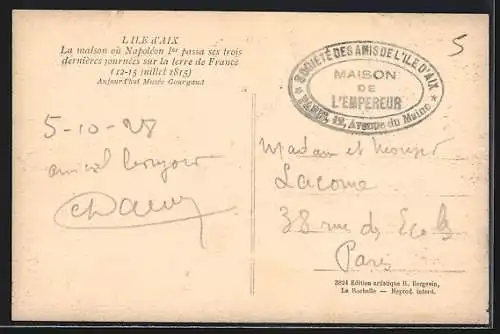 L'ILE d'AIX
La maison où Napoléon Ier passa ses trois
dernières journées sur la terre de France
(12-15 juillet 1815)
Aujourd'hui Musée Gourgaud
5-10-28
amical bonjour
SOCIÉTÉ DES AMIS DE L'ILE D'AIX
MAISON
DE
L'EMPEREUR
PARIS, 12, Avenue du Maine
5
Madame et Monsieur
Lacome
38 rue des Ecoles
Paris
3824 Edition artistique R. Bergevin,
La Rochelle — Reprod. interd.